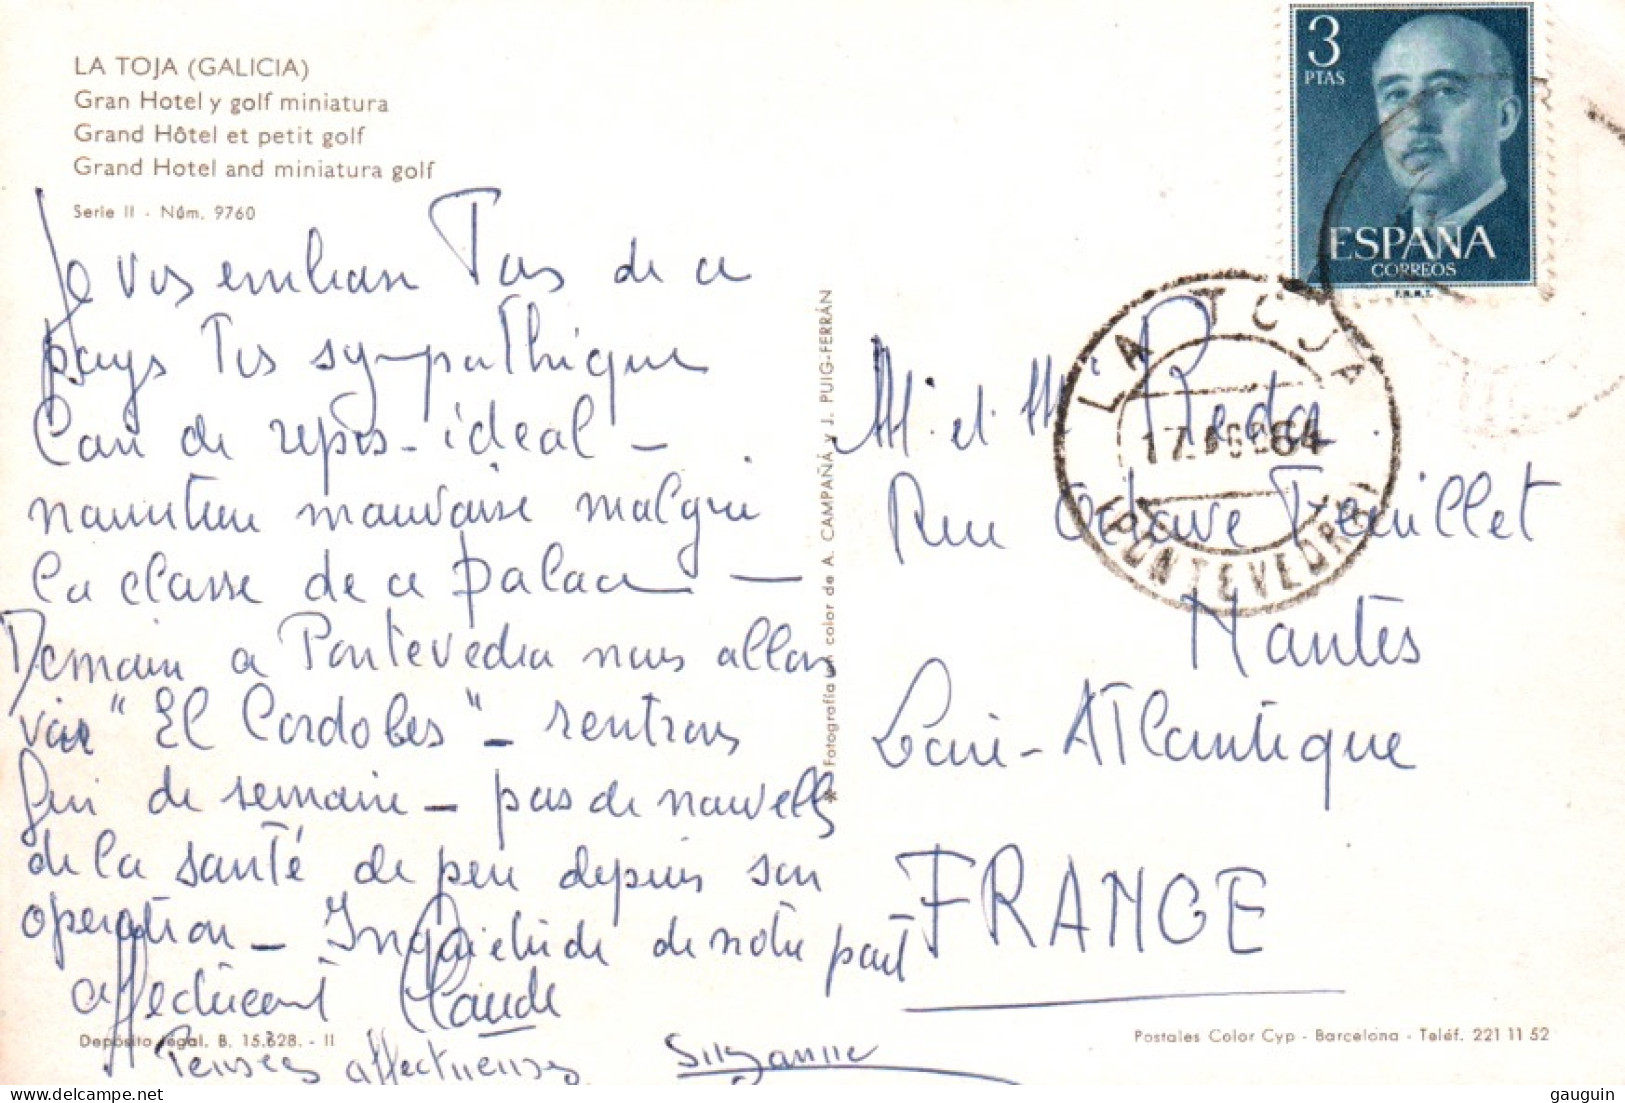 LA TOJA (GALICIA)
Gran Hotel y golf miniatura
Grand Hôtel et petit golf
Grand Hotel and miniatura golf
Serie II - Núm. 9760
Je vs embrasse Tous de ce
pays Trs sympathique
Coin de repos - idéal -
nourriture mauvaise malgré
la classe de ce palace -
Demain a Pontevedra nous allons
voir "El Cordobes" - rentrons
fin de semaine - pas de nouvelles
de la santé de peu depuis son
operation - Inquiétude de notre part
affectueusement Claude
Pensées affectueuses Suzanne
Depósito legal, B. 15.628. - II
* Fotografía en color de A. CAMPAÑÁ y J. PUIG-FERRÁN
3
PTAS
ESPAÑA
CORREOS
F.N.M.T.
LA TOJA
17 AGO 64
(PONTEVEDRA)
Mr et Me Reda
Rue Octave Feuillet
Nantes
Loire-Atlantique
FRANCE
Postales Color Cyp - Barcelona - Teléf. 221 11 52
gauguin © www.delcampe.net